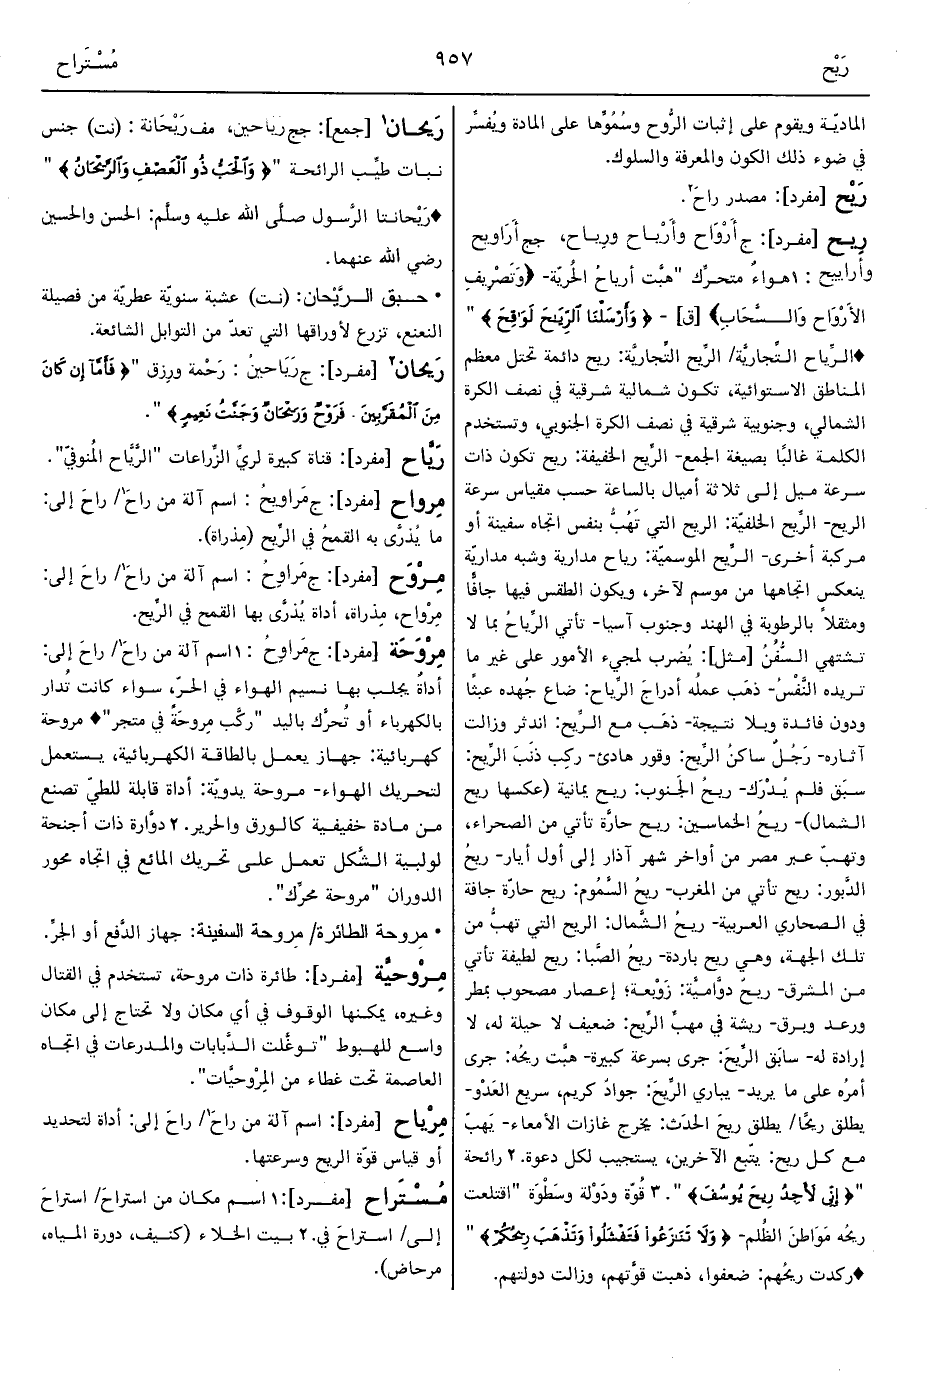 رَيْح
٩٥٧
مُسْتَراح
الماديّة ويقوم على إثبات الرُّوح وسُمُوِّها على المادة ويُفسِّر
في ضوء ذلك الكون والمعرفة والسلوك.
رَيْح [مفرد]: مصدر راحَ٢.
رِيح [مفرد]: ج أَرْوَاح وأَرْيـاح ورِيـاح، جج أَرَاويح
وأَراييح : ١هـواءٌ متحرِّك "هبَّت أرياحُ الحُريّة- ﴿وَتَصْرِيفِ
الأَرْوَاحِ وَالسَّحَابِ﴾ [ق] - ﴿وَأَرْسَلْنَا ٱلرِّيَـٰحَ لَوَاقِحَ﴾ "
♦الـرِّياح التِّجاريَّة/ الرِّيح التِّجاريَّة: ريح دائمة تحتل معظم
المناطق الاستوائية، تكـون شمـالية شرقية في نصف الكرة
الشمالي، وجنوبية شرقية في نصف الكرة الجنوبي، وتستخدم
الكلمة غالبًا بصيغة الجمع- الرِّيح الخفيفة: ريح تكون ذات
سـرعة ميـل إلـى ثـلاثة أميـال بالساعة حسب مقياس سرعة
الريح- الرِّيح الخلفيّة: الريح التي تَهُبُّ بنفس اتجاه سفينة أو
مـركبة أخـرى- الـرِّيح الموسميّة: رياح مدارية وشبه مداريّة
ينعكس اتجاهها من موسم لآخر، ويكون الطقس فيها جافًّا
ومثقلاً بالرطوبة في الهند وجنوب آسيا- تأتي الرِّياحُ بما لا
تـشتهي الـسُّفُنُ [مـثل]: يُضرب لمجيء الأمور على غير ما
تريده النَّفْسُ- ذهَب عملُه أدراجَ الرِّياح: ضاع جُهده عبثًا
ودون فائدة وبلا نتيجة- ذهَب مـع الـرِّيح: اندثر وزالت
آثـاره- رَجُـلٌ ساكنُ الرِّيح: وقور هادئ- ركِب ذنَبَ الرِّيح:
سبَق فلم يُدْرَك- ريـحُ الجَنوب: ريـح يمانية (عكسها ريح
الـشمال)- ريـحُ الخماسين: ريـح حارَّة تأتي من الصحراء،
وتهبّ عبر مصر من أواخر شهر آذار إلى أول أيار- ريحُ
الدَّبور: ريح تأتي من المغرب- ريحُ السَّموم: ريح حارّة جافة
في الصحاري العربية- ريـحُ الشَّمال: الريح التي تهبُّ من
تلـك الجهة، وهي ريح باردة- ريحُ الصَّبا: ريح لطيفة تأتي
مـن المـشرق- ريـحٌ دوَّاميَّة: زَوْبعة؛ إعصار مصحوب بمطر
ورعـد وبـرق- ريشة في مهبِّ الرِّيح: ضعيف لا حيلة له، لا
إرادة له- سابَق الرِّيحَ: جرى بسرعة كبيرة- هبَّت ريحُه: جرى
أمرُه على ما يريد- يباري الرِّيحَ: جوادٌ كريم، سريع العَدْو-
يطلق ريحًا/ يطلق ريحَ الحدَث: يخرج غازات الأمعاء- يَهَبّ
مع كـل ريح: يتّبع الآخرين، يستجيب لكل دعوة. ٢ رائحة
"﴿إِنِّي لَأَجِدُ رِيحَ يُوسُفَ﴾ ". ٣ قُوَّة ودَوْلَة وسَطْوَة "اقتلعت
ريحُه مَوَاطِنَ الظُلم- ﴿وَلَا تَنَٰزَعُواْ فَتَفْشَلُواْ وَتَذْهَبَ رِيحُكُمْ﴾ "
♦ركدت ريحُهم: ضعفوا، ذهبت قوَّتهم، وزالت دولتهم.
رَيحان١ [جمع]: جج رَياحين، مف رَيْحَانة : (نت) جنس
نبـات طيِّب الرائحة "﴿وَٱلْحَبُّ ذُو ٱلْعَصْفِ وَٱلرَّيْحَانُ﴾ "
♦رَيْحانـتا الرَّسول صلَّى الله عليـه وسلَّم: الحسن والحسين
رضي الله عنهما.
• حـبق الـرَّيْحان: (نـت) عشبة سنويّة عطريّة من فصيلة
النعنع، تزرع لأوراقها التي تعدّ من التوابل الشائعة.
رَيحان٢ [مفرد]: ج رَيَاحينُ : رَحْمة ورِزق "﴿فَأَمَّآ إِن كَانَ
مِنَ ٱلْمُقَرَّبِينَ . فَرَوْحٌ وَرَيْحَانٌ وَجَنَّتُ نَعِيمٍ﴾ ".
رَيَّاح [مفرد]: قناة كبيرة لريِّ الزِّراعات "الرَّيَّاح المُنوفيّ".
مِرواح [مفرد]: ج مَراويحُ : اسم آلة من راحَ١/ راحَ إلى:
ما يُذرَّى به القمحُ في الرِّيح (مِذراة).
مِـرْوَح [مفرد]: ج مَراوِحُ : اسم آلة من راحَ١/ راحَ إلى:
مِرْواح، مِذراة، أداة يُذرَّى بها القمح في الرِّيح.
مِرْوَحَة [مفرد]: ج مَراوِحُ : ١ اسم آلة من راحَ١/ راحَ إلى:
أداةٌ يجلب بها نسيم الهواء في الحرّ، سواء كانت تُدار
بالكهرباء أو تُحرَّك باليد "ركَّب مِروحةً في متجر"♦ مروحة
كهربائية: جهاز يعمل بالطاقة الكهربائية، يستعمل
لتحريك الهواء- مروحة يدويّة: أداة قابلة للطيّ تصنع
من مادة خفيفية كالورق والحرير. ٢ دوَّارة ذات أجنحة
لولبية الشَّكل تعمل على تحريك المائع في اتجاه محور
الدوران "مروحة محرِّك".
• مروحة الطائرة/ مروحة السفينة: جهاز الدَّفع أو الجرّ.
مِـرْوحيَّة [مفرد]: طائرة ذات مروحة، تستخدم في القتال
وغيره، يمكنها الوقوف في أي مكان ولا تحتاج إلى مكان
واسع للهبوط "توغَّلت الدَّبابات والمدرعات في اتجاه
العاصمة تحت غطاء من المِرْوحيَّات".
مِرْياح [مفرد]: اسم آلة من راحَ١/ راحَ إلى: أداة لتحديد
أو قياس قوّة الريح وسرعتها.
مُـسْتَراح [مفـرد]:١ اسـم مكـان من استراحَ/ استراحَ
إلى/ استراحَ في. ٢ بيت الخلاء (كنيف، دورة المياه،
مرحاض).